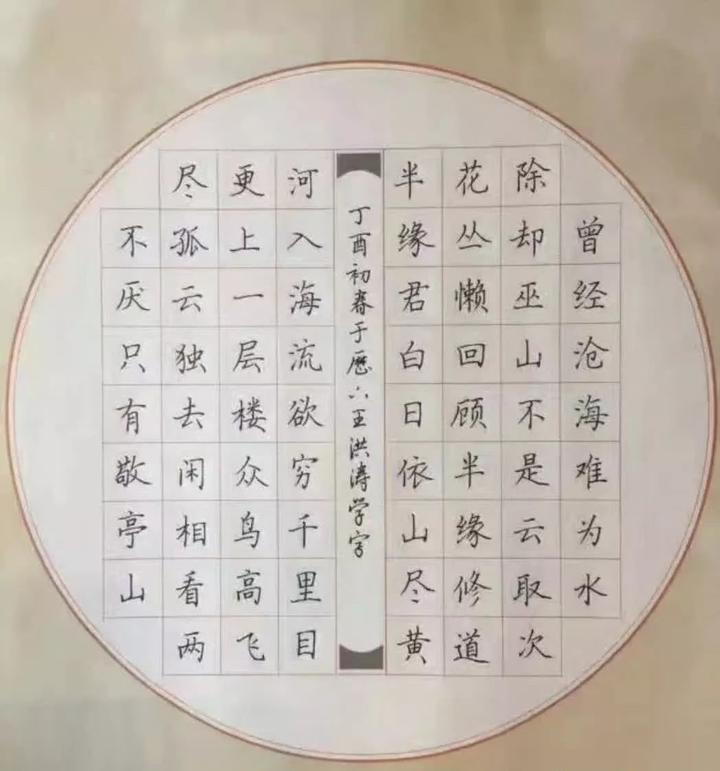 曾经沧海难为水
除却巫山不是云取次
花丛懒回顾半缘修道
半缘君白日依山尽黄
丁酉初春于王洪涛学字
河入海流欲穷千里目
更上一层楼众鸟高飞
尽孤云独去闲相看两
不厌只有敬亭山